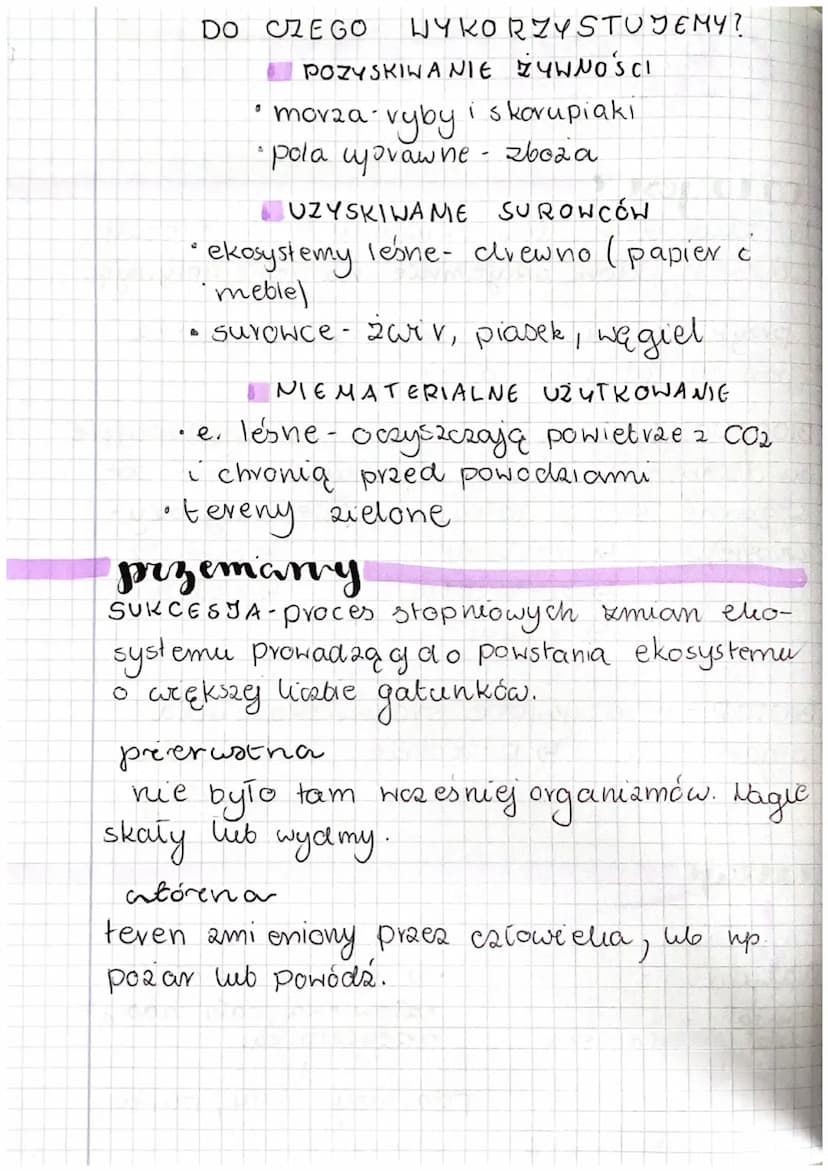 DO CZEGO WYKORZYSTUJEMY?
POZYSKIWANIE ŻYWNOŚCI
• morza - ryby i skorupiaki
• pola uprawne - zboża
UZYSKIWANIE SUROWCÓW
• ekosystemy leśne - drewno ( papier i
meble)
• surowce - żwir, piasek, węgiel
NIEMATERIALNE UŻYTKOWANIE
• e. leśne - oczyszczają powietrze z CO2
i chronią przed powodziami
• tereny zielone
przemiany
SUKCESJA - proces stopniowych zmian eko-
systemu prowadzący do powstania ekosystemu
o większej liczbie gatunków.
pierwotna
nie było tam wcześniej organizmów. Nagie
skały lub wydmy.
wtórna
teren zmieniony przez człowieka, lub np.
pożar lub powódź.